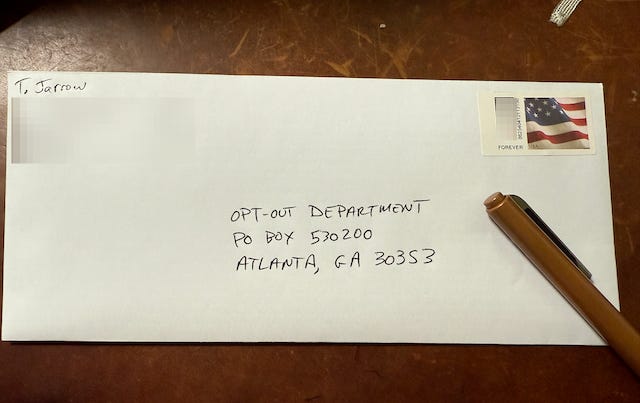 T. Jarrow
FOREVER
OPT-OUT DEPARTMENT
PO BOX 530200
ATLANTA, GA 30353